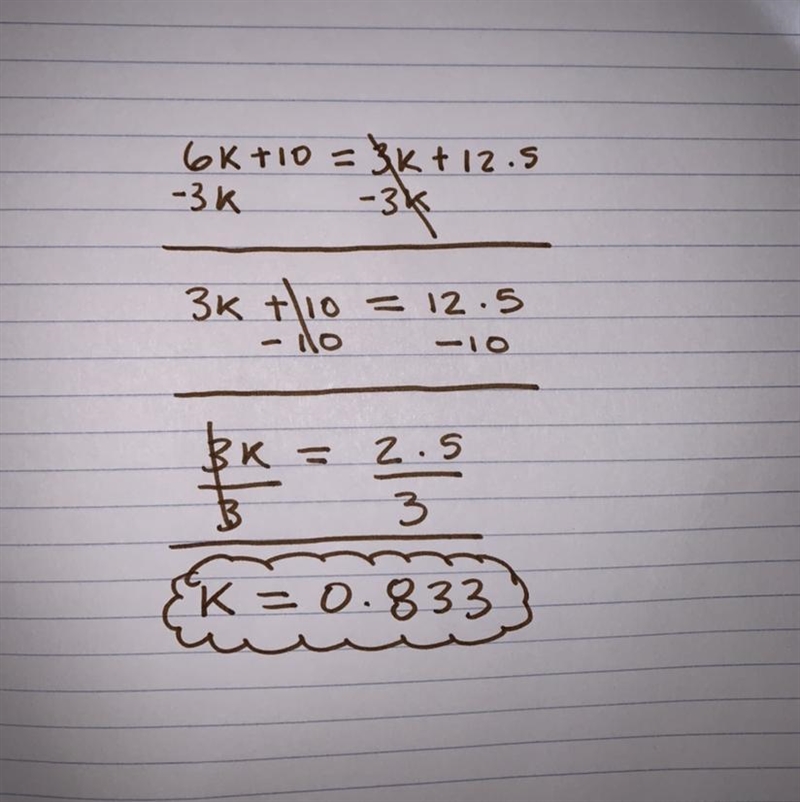 6K+10 = 3K+12.5
-3K -3K
3K +10 = 12.5
-10 -10
3K = 2.5
3 3
K = 0.833